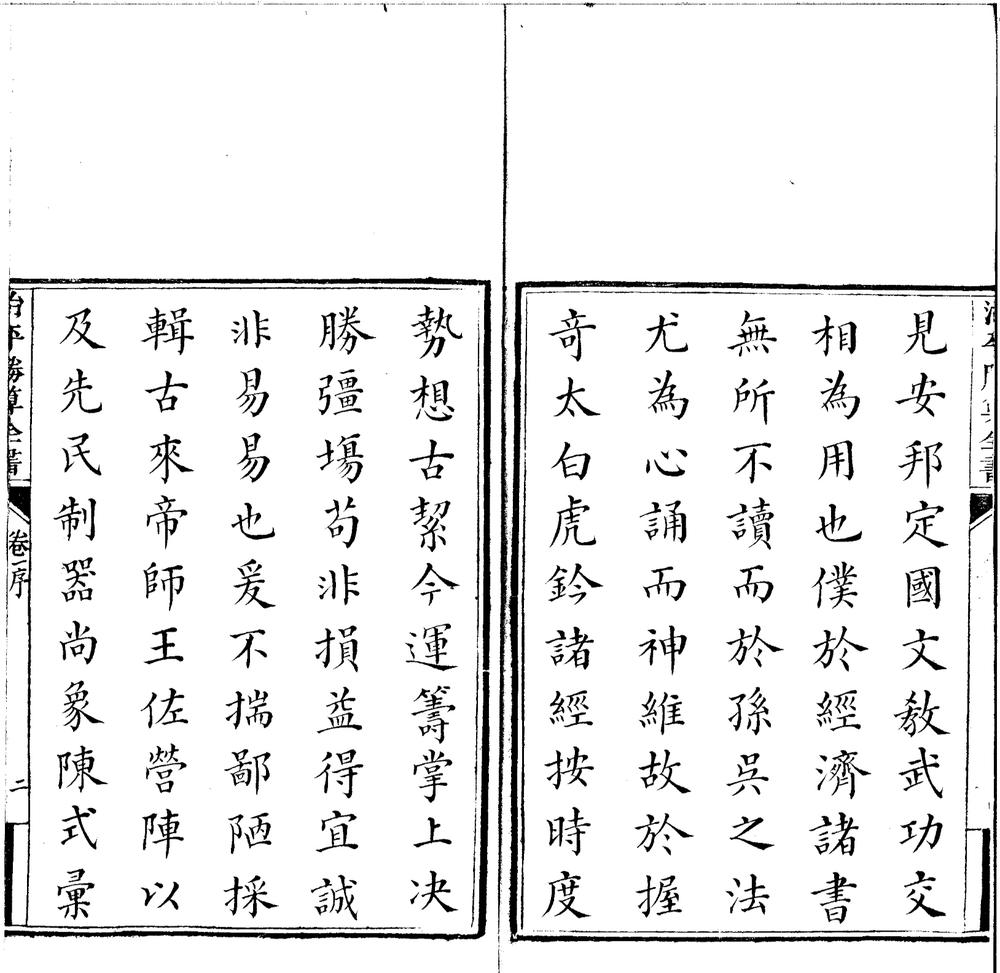 見安邦定國文教武功交
相為用也僕於經濟諸書
無所不讀而於孫吳之法
尤為心誦而神維故於握
竒太白虎鈐諸經按時度
勢想古絜今運籌掌上决
勝彊場苟非損益得宜誠
非易易也爰不揣鄙陋採
輯古來帝師王佐營陣以
及先民制器尚象陳式彙
治平勝算全書
卷一序
二